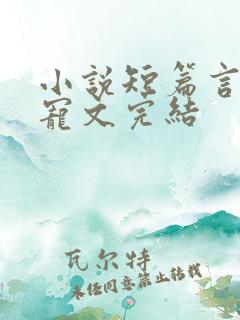 小說短篇言
寵文完結
瓦尔特
未经同意禁止转载